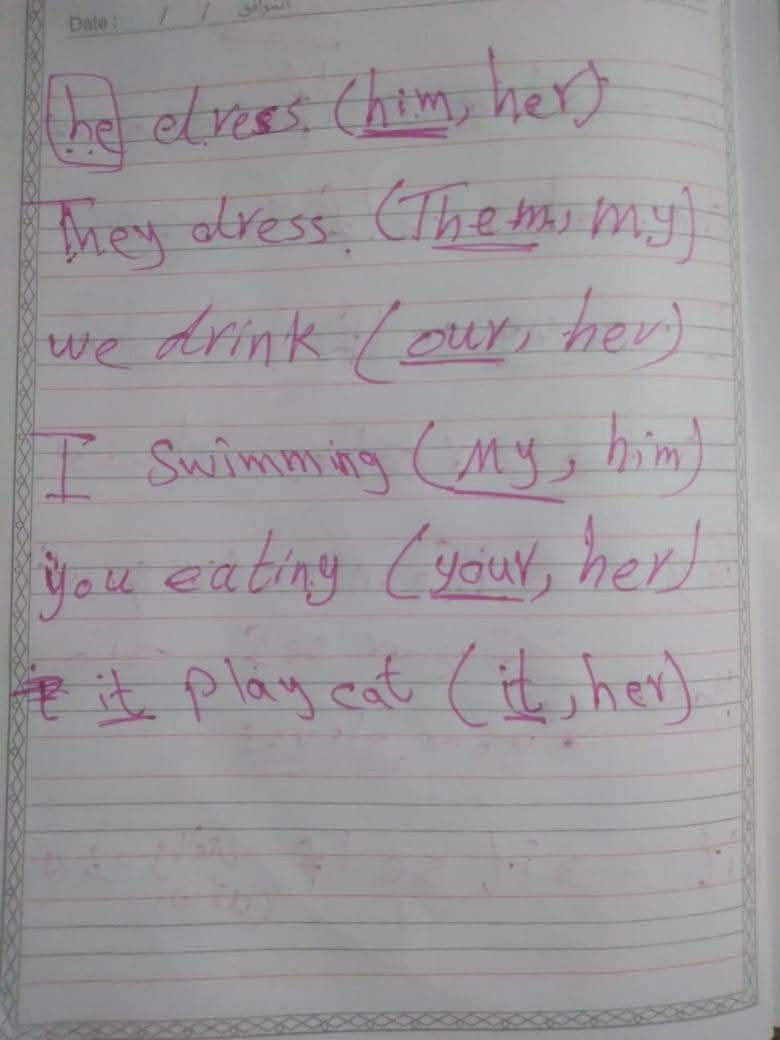 Date: / / الموافق
he dress. (him, her)
They dress. (Them, my)
we drink (our, her)
I Swimming (My, him)
you eating (your, her)
it play cat (it, her)